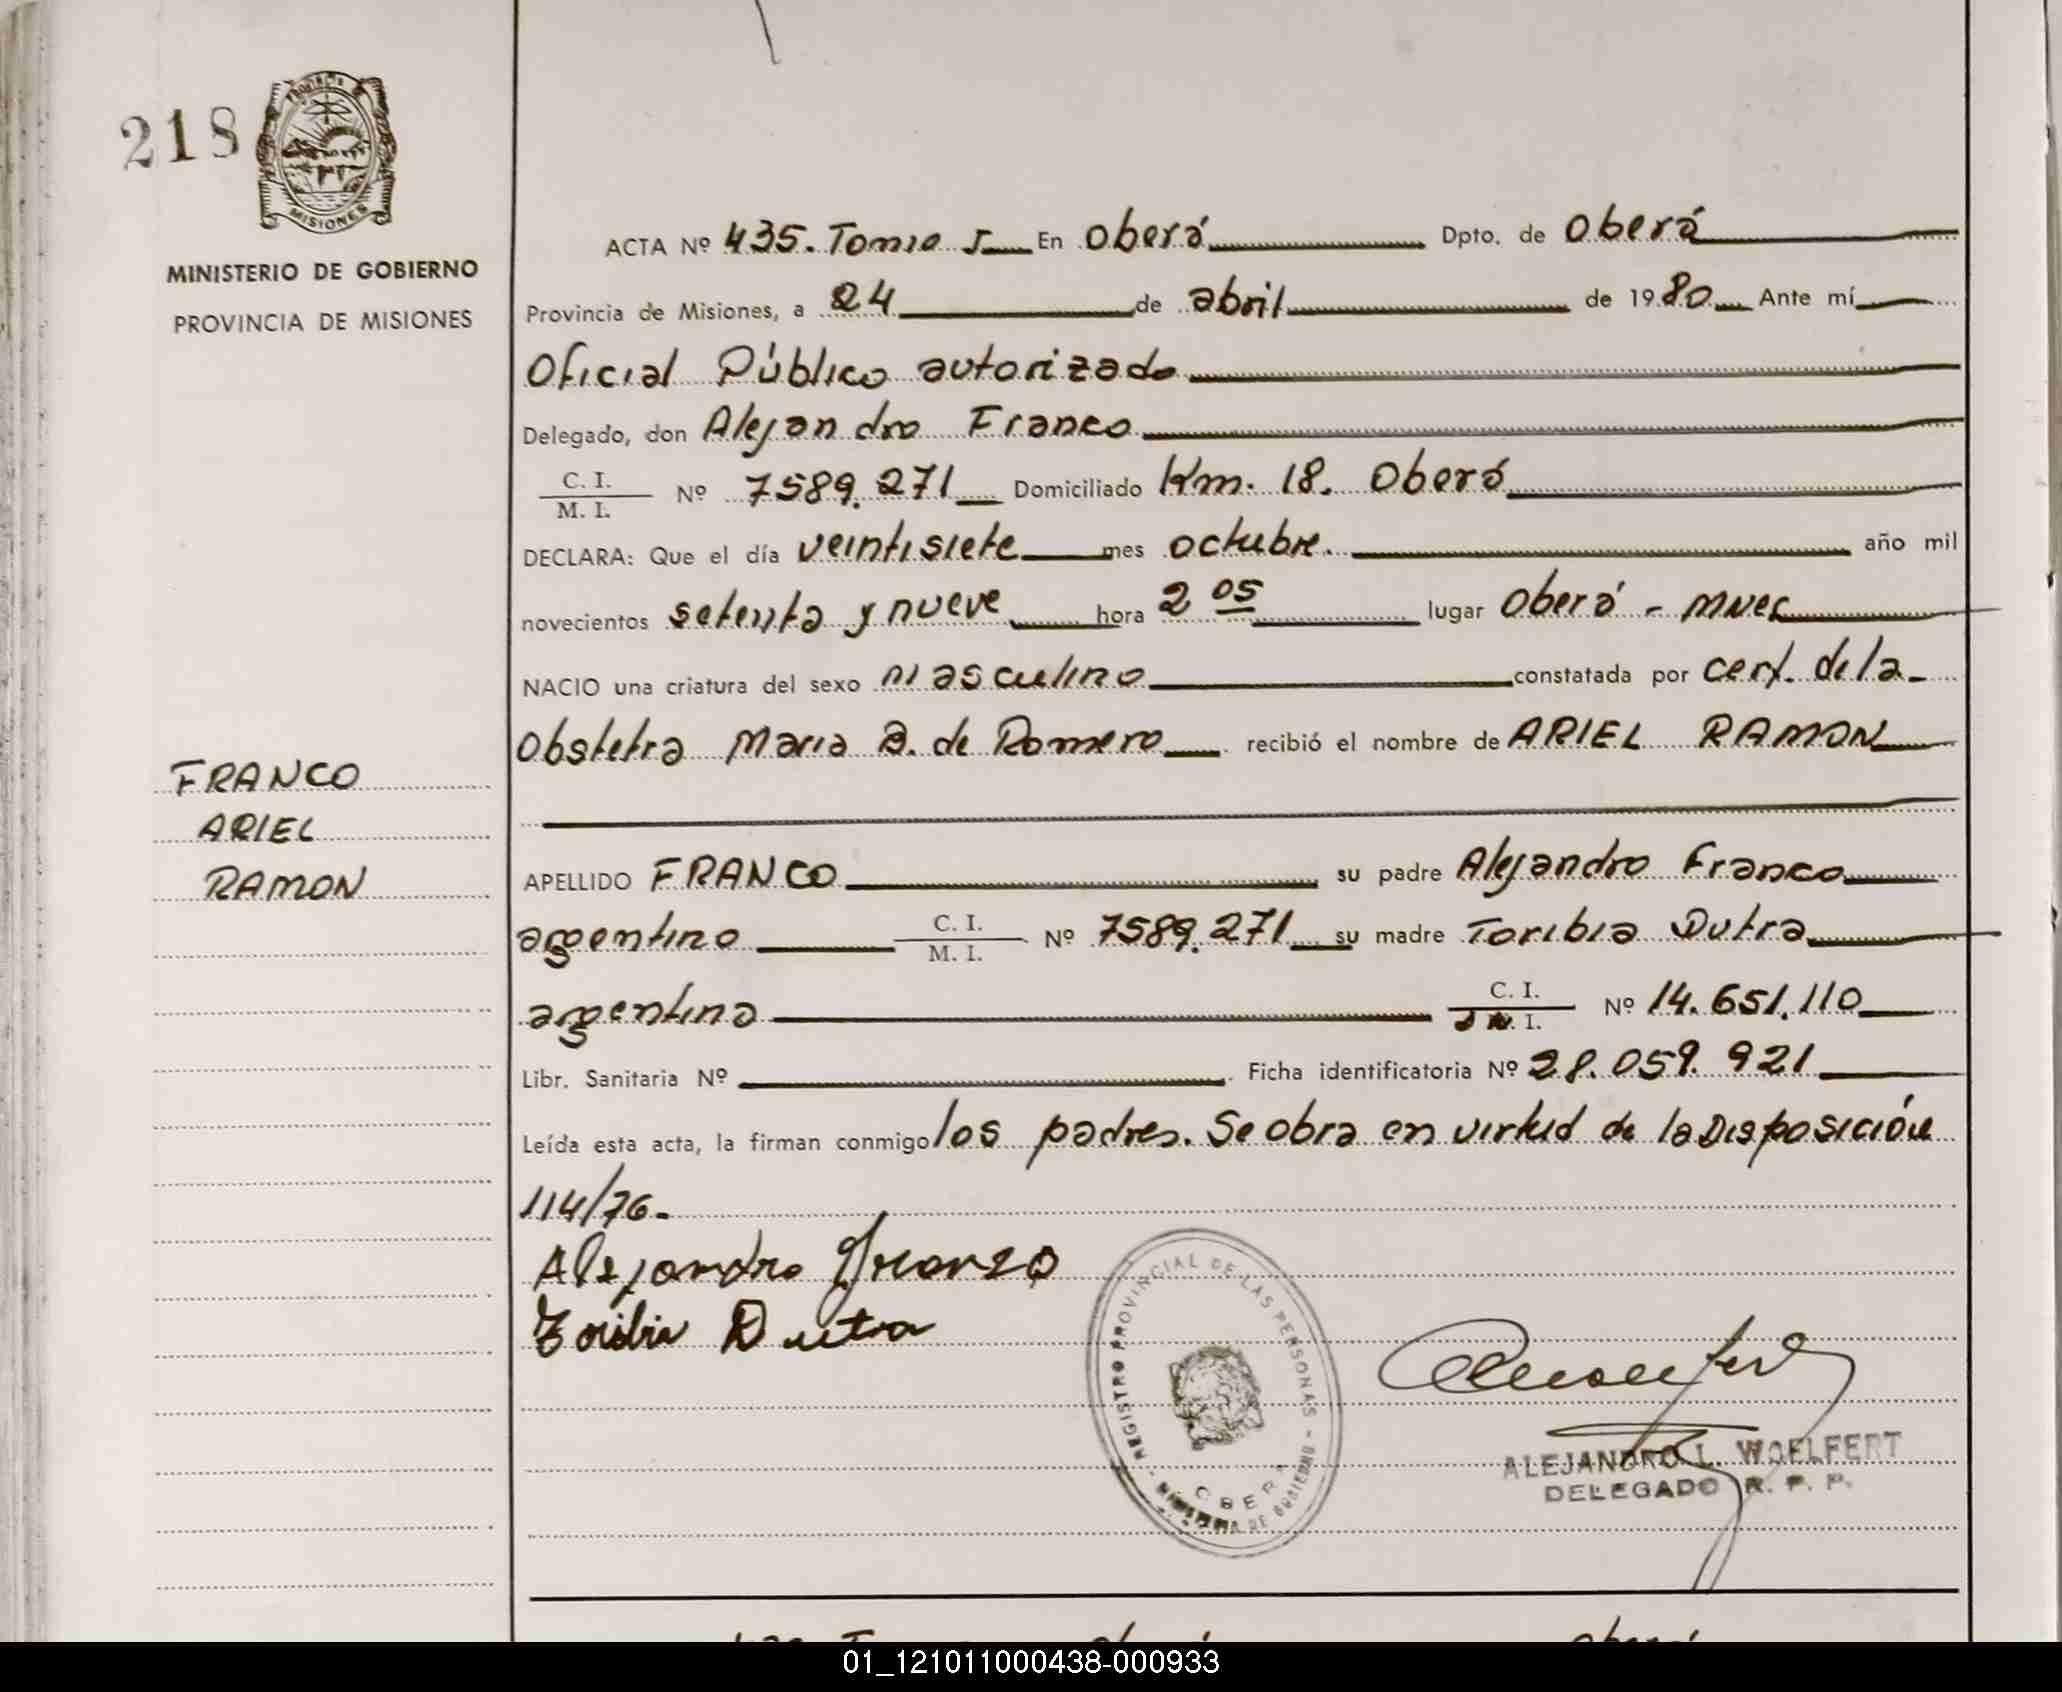 218
PROVINCIA DE
MISIONES
MINISTERIO DE GOBIERNO
PROVINCIA DE MISIONES
ACTA Nº 435. Tomo I En Oberá Dpto. de Oberá
Provincia de Misiones, a 24 de abril de 1980 Ante mí
Oficial Público autorizado
Delegado, don Alejandro Franco
C. I.
M. I. Nº 7589.271 Domiciliado Km. 18. Oberá
DECLARA: Que el día veintisiete mes octubre. año mil
novecientos setenta y nueve hora 2 05 lugar Oberá -
NACIO una criatura del sexo masculino constatada por cert. de la
Obstetra Maria B. de Romero recibió el nombre de ARIEL RAMON
FRANCO
ARIEL
RAMON
APELLIDO FRANCO su padre Alejandro Franco
argentino C. I.
M. I. Nº 7589.271 su madre Toribia Dutra
argentina C. I.
I. Nº 14.651.110
Libr. Sanitaria Nº Ficha identificatoria Nº 28.059.921
Leída esta acta, la firman conmigo los padres. Se obra en virtud de la Disposición
114/76.-
Alejandro Franco
Toribia Dutra
REGISTRO PROVINCIAL DE LAS PERSONAS - DE GOBIERNO -
OBERA
ALEJANDRO L. WOELFERT
DELEGADO R. P. P.
01_121011000438-000933